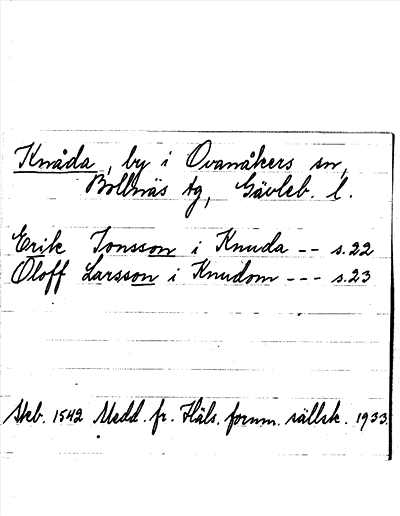 Knåda, by i Ovanåkers sn,
Bollnäs tg, Gävleb. l.
Erik Jonsson i Knuda -- s.22
Oloff Larsson i Knudom --- s.23
Skb. 1542 Medd. fr. Häls. fornm. sällsk. 1933.